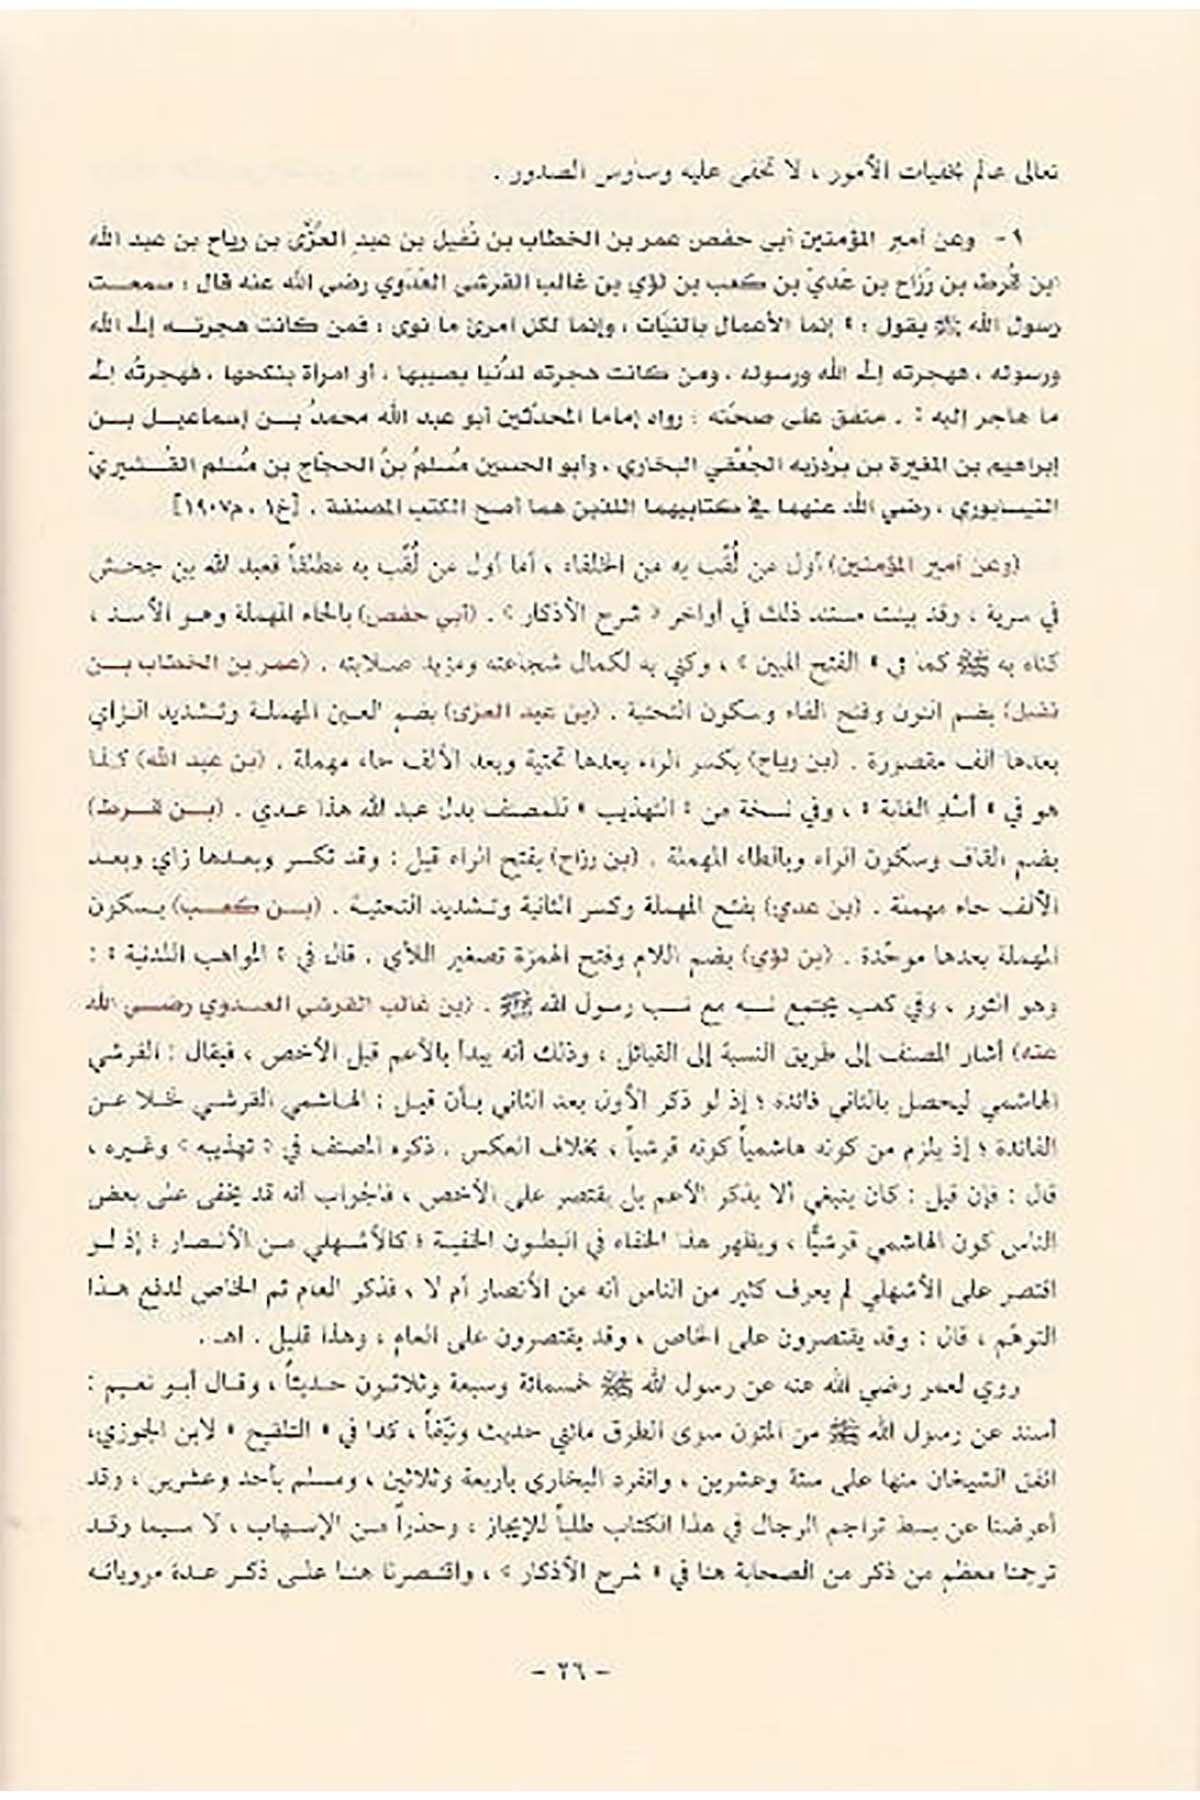 تعالى عالم بخفيات الأمور ، لا تخفى عليه وساوس الصدور .
١- وعن أمير المؤمنين أبي حفص عمر بن الخطاب بن نُفَيل بن عبدِ العُزَّى بن رياح بن عبد الله
ابن قُرط بن رَزَاح بن عَديّ بن كعب بن لؤي بن غالب القرشي العَدَوي رضي الله عنه قال : سمعت
رسول الله ﷺ يقول : « إنما الأعمال بالنيّات ، وإنما لكل امرئ ما نوى ؛ فمن كانت هجرته إلى الله
ورسوله ، فهجرته إلى الله ورسوله ، ومن كانت هجرته لدُنيا يصيبها ، أو امرأة ينكحها ، فهجرتُه إلى
ما هاجر إليه » . متفق على صحّته ؛ رواه إماما المحدّثين أبو عبد الله محمدُ بن إسماعيل بن
إبراهيم بن المغيرة بن بردزبه الجُعْفي البخاري ، وأبو الحسين مُسلمُ بنُ الحجّاج بن مُسلم القُشيريّ
النيسابوري ، رضي الله عنهما في كتابيهما اللذين هما أصح الكتب المصنفة . [خ١ ، م١٩٠٧]
(وعن أمير المؤمنين) أول من لُقّب به من الخلفاء ، أما أول من لُقّب به مطلقاً فعبد الله بن جحش
في سرية ، وقد بينت مستند ذلك في أواخر « شرح الأذكار » . (أبي حفص) بالحاء المهملة وهو الأسد ،
كناه به ﷺ كما في « الفتح المبين » ، وكني به لكمال شجاعته ومزيد صلابته . (عمر بن الخطاب بن
نفيل) بضم النون وفتح الفاء وسكون التحتية . (بن عبد العزى) بضم العين المهملة وتشديد الزاي
بعدها ألف مقصورة . (بن رياح) بكسر الراء بعدها تحتية وبعد الألف حاء مهملة . (بن عبد الله) كذا
هو في « أُسْد الغابة » ، وفي نسخة من « التهذيب » للمصنف بدل عبد الله هذا عدي . (بن قرط)
بضم القاف وسكون الراء وبالطاء المهملة . (بن رزاح) بفتح الراء قيل : وقد تكسر وبعدها زاي وبعد
الألف حاء مهملة . (بن عدي) بفتح المهملة وكسر الثانية وتشديد التحتية . (بن كعب) بسكون
المهملة بعدها موحّدة . (بن لؤي) بضم اللام وفتح الهمزة تصغير اللأي . قال في « المواهب اللدنية » :
وهو الثور ، وفي كعب يجتمع نسبه مع نسب رسول الله ﷺ . (بن غالب القرشي العدوي رضي الله
عنه) أشار المصنف إلى طريق النسبة إلى القبائل ، وذلك أنه يبدأ بالأعم قبل الأخص ، فيقال : القرشي
الهاشمي ليحصل بالثاني فائدة ؛ إذ لو ذكر الأول بعد الثاني بأن قيل : الهاشمي القرشي لخلا عن
الفائدة ؛ إذ يلزم من كونه هاشمياً كونه قرشياً ، بخلاف العكس . ذكره المصنف في « تهذيبه » وغيره ،
قال : فإن قيل : كان ينبغي ألا يذكر الأعم بل يقتصر على الأخص ، فالجواب أنه قد يخفى على بعض
الناس كون الهاشمي قرشيًّا ، ويظهر هذا الخفاء في البطون الخفية ؛ كالأشهلي من الأنصار ؛ إذ لو
اقتصر على الأشهلي لم يعرف كثير من الناس أنه من الأنصار أم لا ، فذكر العام ثم الخاص لدفع هذا
التوهّم ، قال : وقد يقتصرون على الخاص ، وقد يقتصرون على العام ، وهذا قليل . اهـ .
روي لعمر رضي الله عنه عن رسول الله ﷺ خمسمائة وسبعة وثلاثون حديثاً ، وقال أبو نعيم :
أسند عن رسول الله ﷺ من المتون سوى الطرق مائتي حديث ونيّفاً ، كذا في « التلقيح » لابن الجوزي،
اتفق الشيخان منها على ستة وعشرين ، وانفرد البخاري بأربعة وثلاثين ، ومسلم بأحد وعشرين ، وقد
أعرضنا عن بسط تراجم الرجال في هذا الكتاب طلباً للإيجاز ، وحذراً من الإسهاب ، لا سيما وقد
ترجمنا معظم من ذكر من الصحابة هنا في « شرح الأذكار » ، واقتصرنا هنا على ذكر عدة مروياته
- ٢٦ -